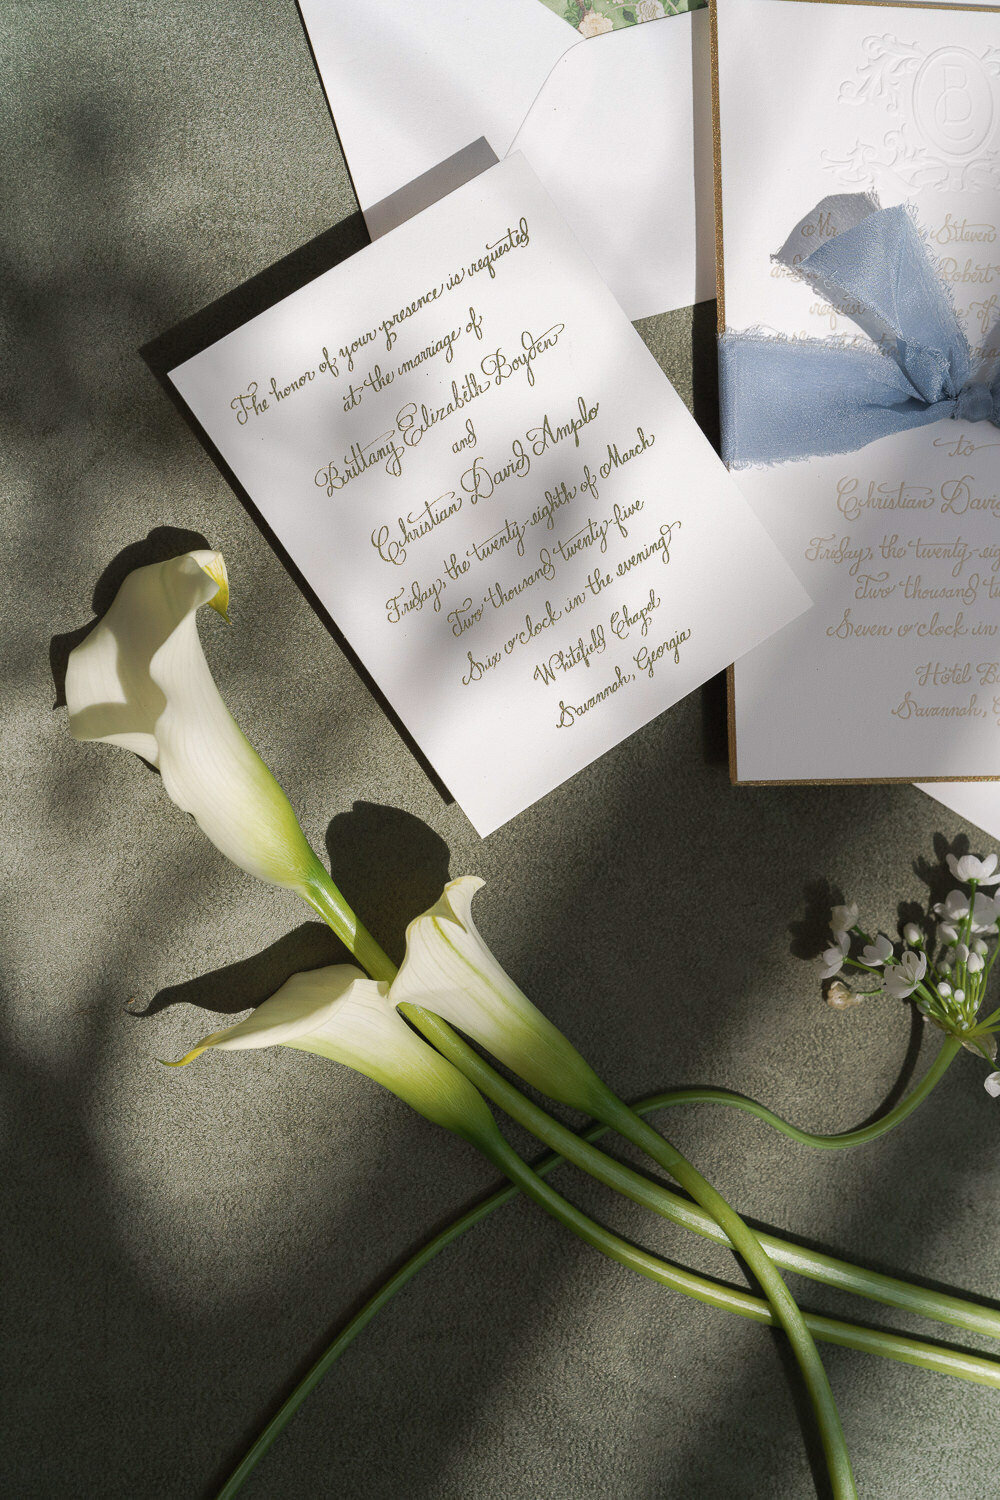 The honor of your presence is requested
at the marriage of
Brittany Elizabeth Boyden
and
Christian David Amplo
Friday, the twenty-eighth of March
Two thousand twenty-five
Six o'clock in the evening
Whitefield Chapel
Savannah, Georgia
B
Mr. Steven
Robert
request
to
Christian Davi
Friday, the twenty-eig
Two thousand t
Seven o'clock in
Hotel B
Savannah,